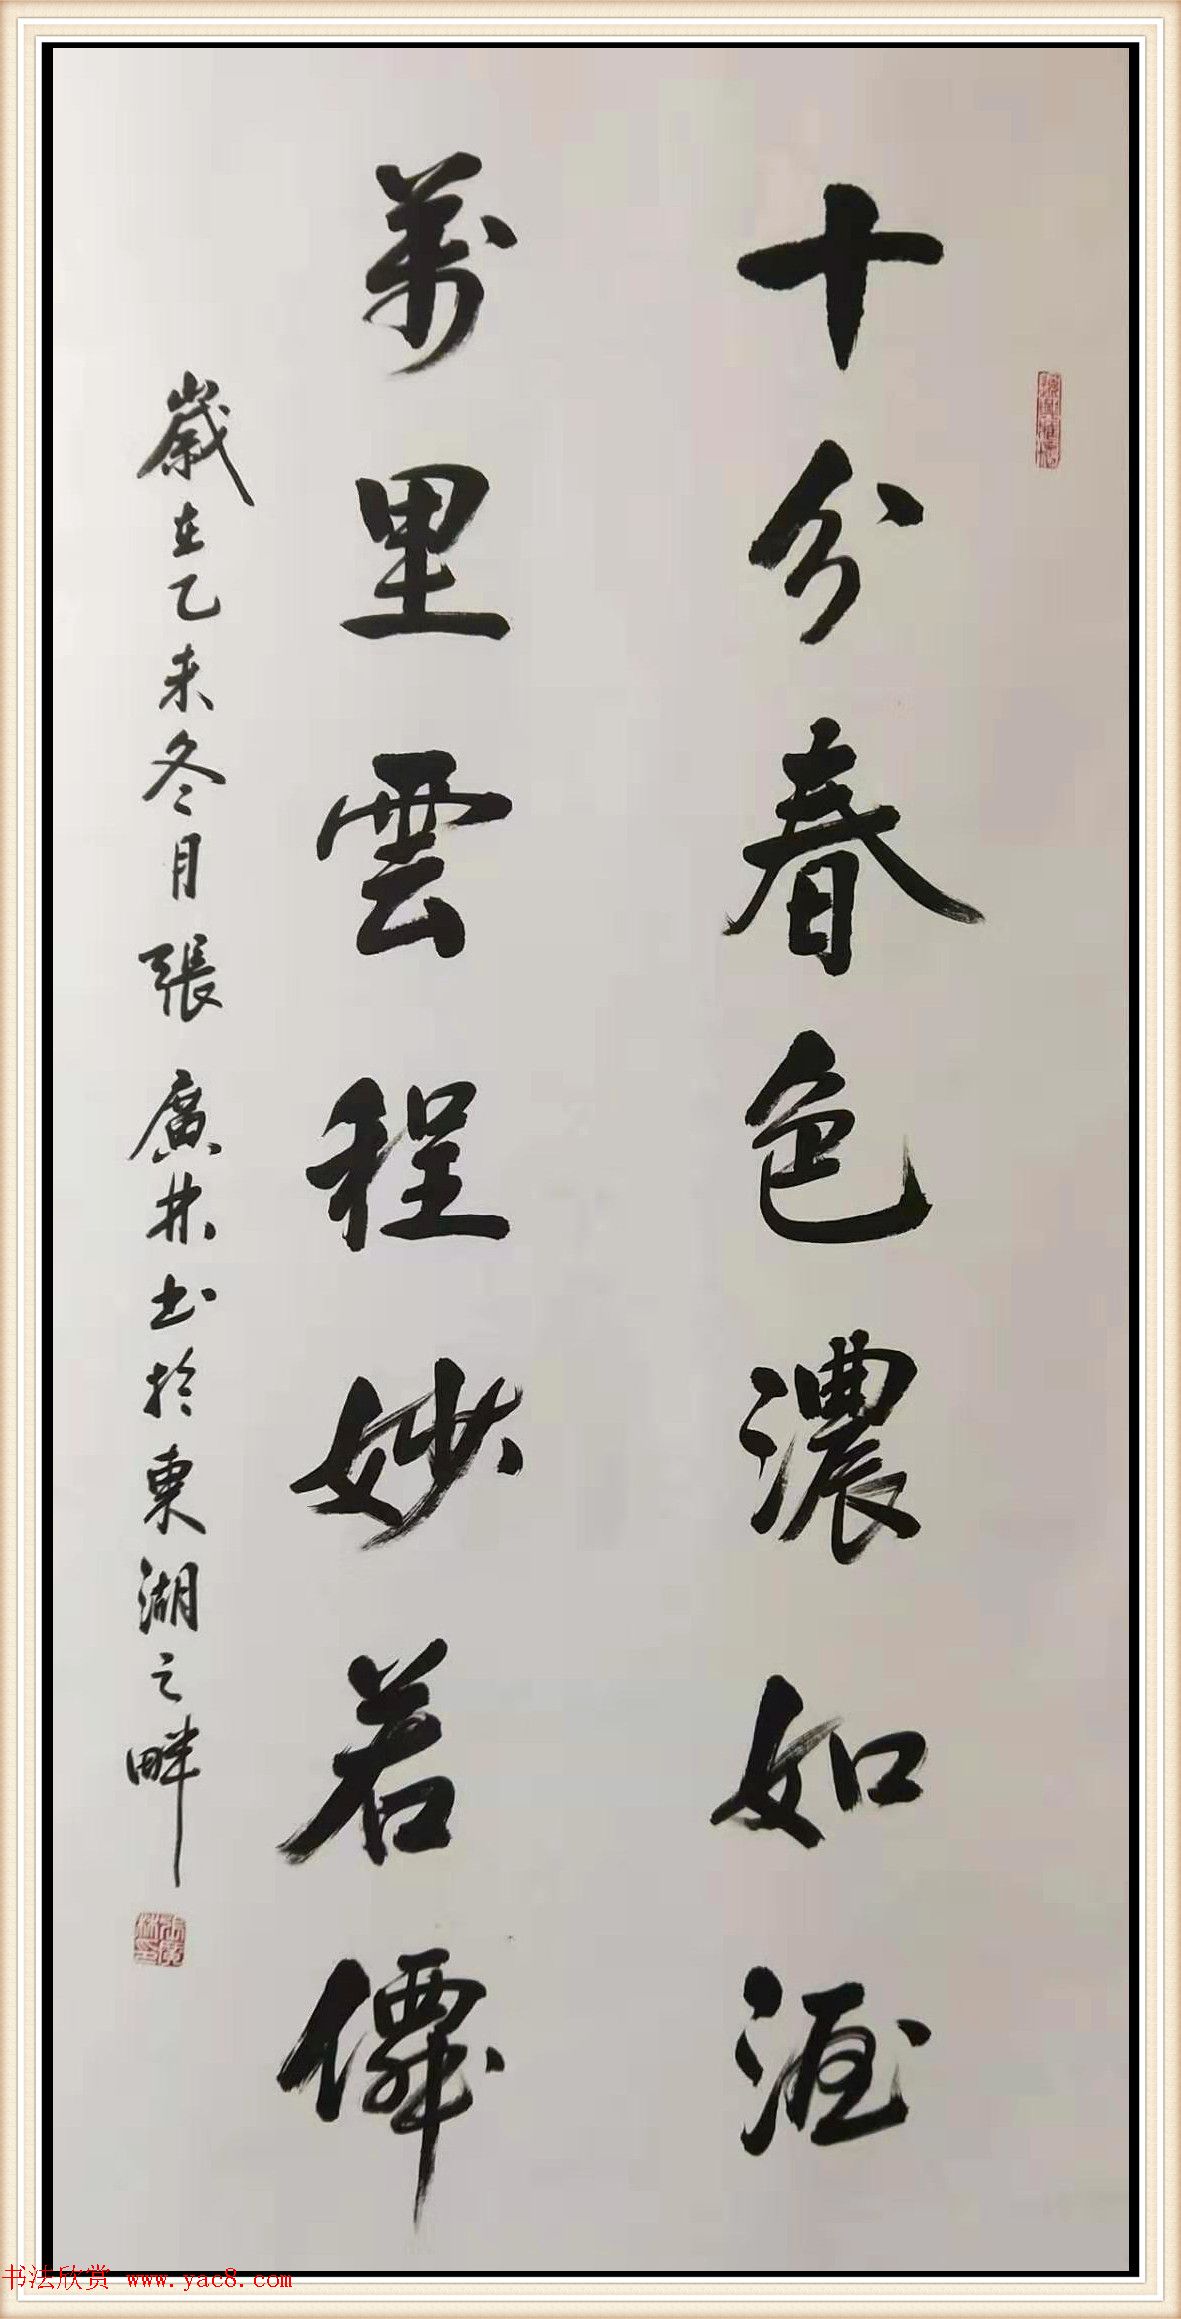 十分春色濃如酒
萬里雲程妙若僊
歲在乙未冬月張廣林書於東湖之畔
張廣林印
书法欣赏 www.yac8.com